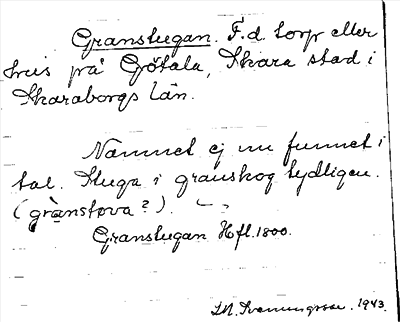 Granstugan. F.d. torp eller
hus på Götala, Skara stad i
Skaraborgs län.
Namnet ej nu funnet i
tal. Stuga i granskog tydligen.
(grànstova?).
Granstugan Hfl. 1800.
1943.